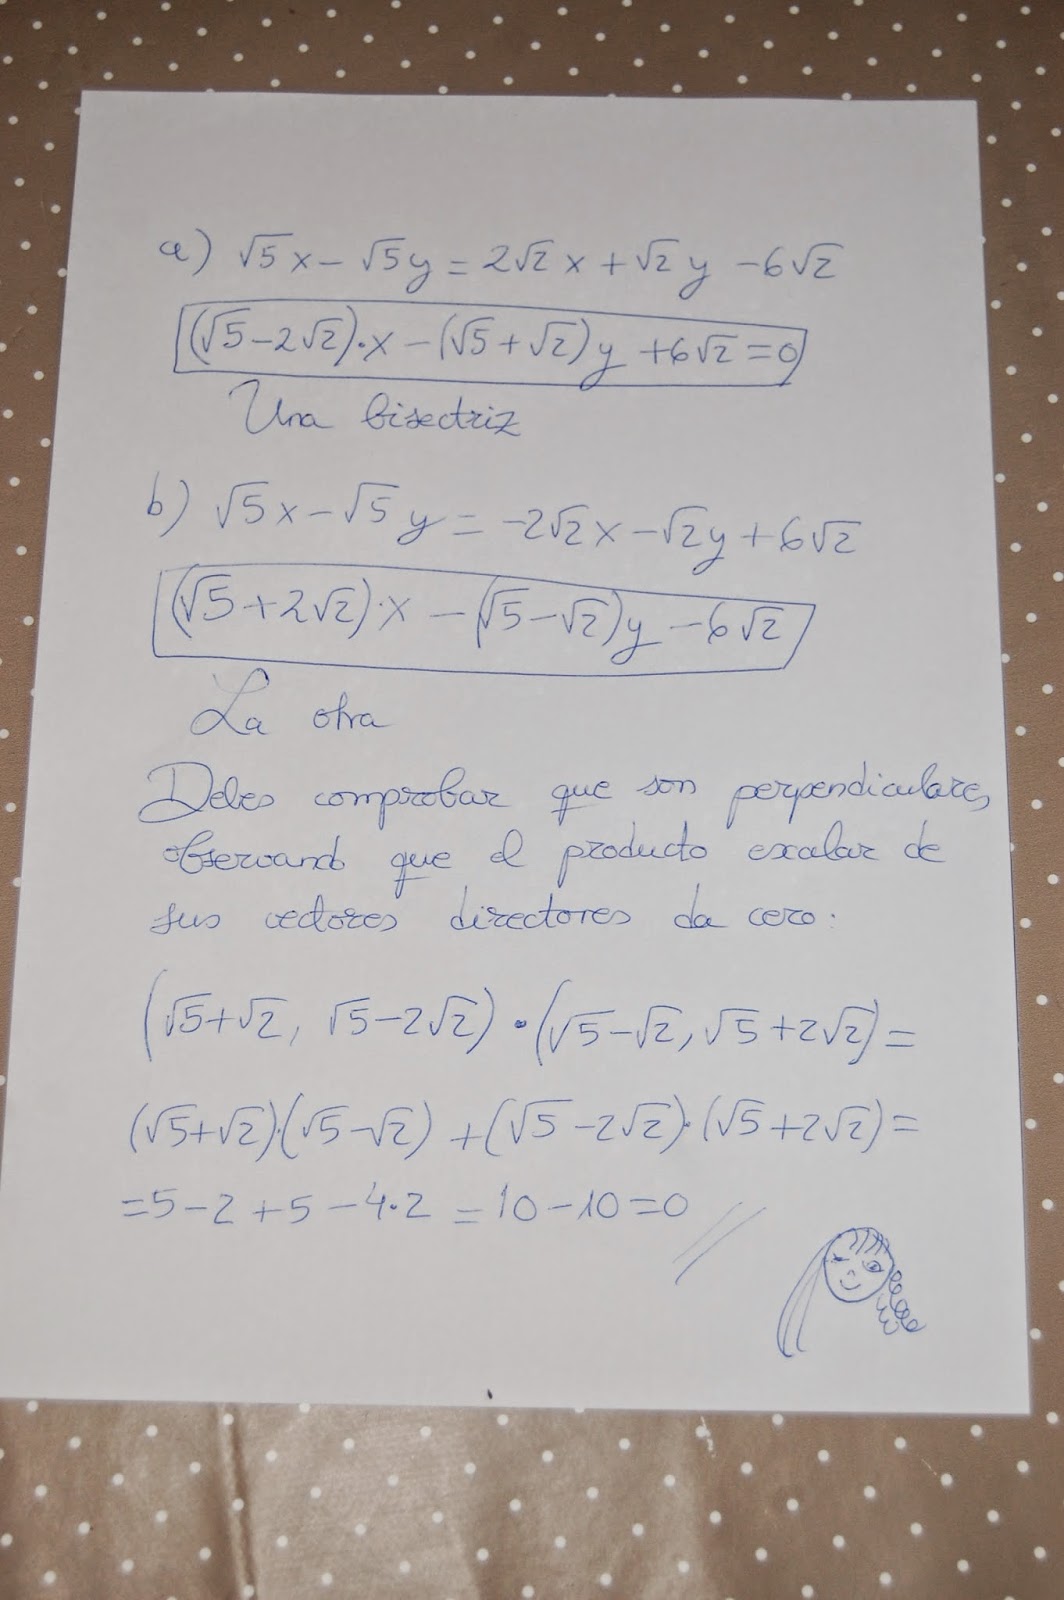 a) √5 x - √5 y = 2√2 x + √2 y - 6√2
(√5 - 2√2)·x - (√5 + √2)y + 6√2 = 0
Una bisectriz
b) √5 x - √5 y = -2√2 x - √2 y + 6√2
(√5 + 2√2)·x - (√5 - √2)y - 6√2
La otra
Debes comprobar que son perpendiculares,
observando que el producto escalar de
sus vectores directores da cero:
(√5+√2, √5-2√2)·(√5-√2, √5+2√2) =
(√5+√2)·(√5-√2) + (√5-2√2)·(√5+2√2) =
= 5 - 2 + 5 - 4·2 = 10 - 10 = 0